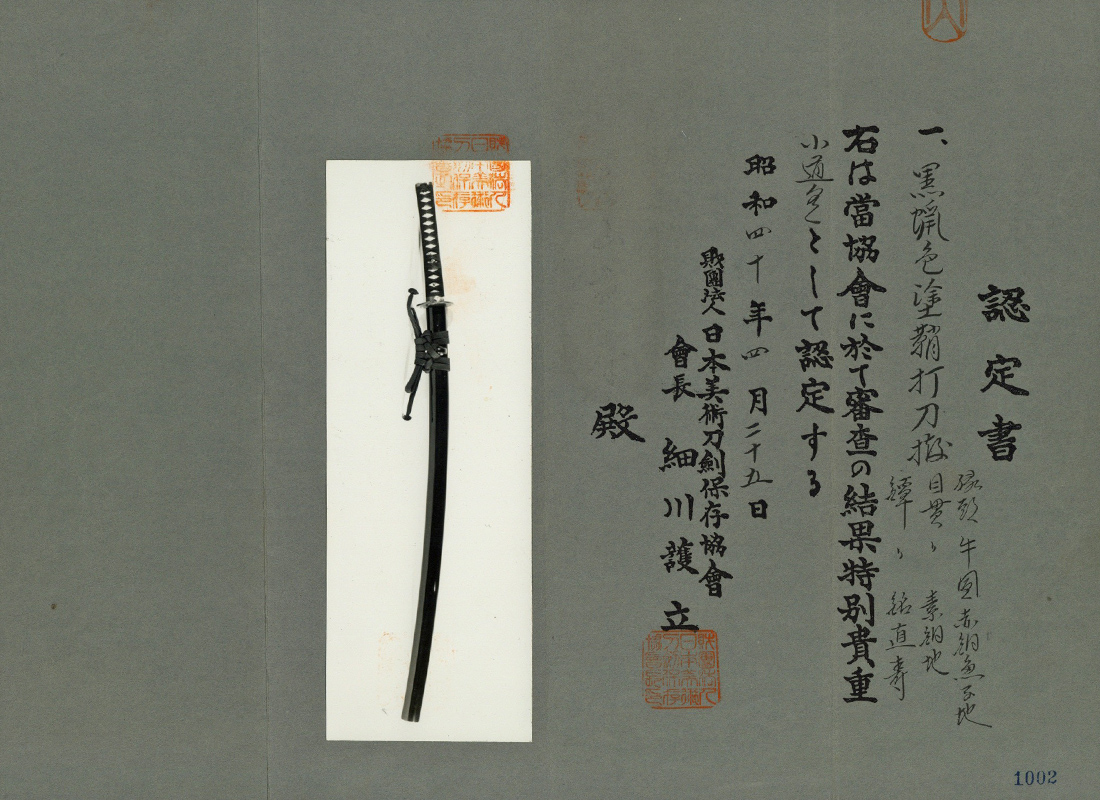 認定書
一、黒蝋色塗鞘打刀拵
縁頭 牛図赤銅魚子地
目貫 〃 素銅地
鐔 〃 銘直寿
右は當協會に於て審査の結果特別貴重
小道具として認定する
昭和四十年四月二十五日
財團法人日本美術刀劍保存協會
會長 細川護立
殿
1002